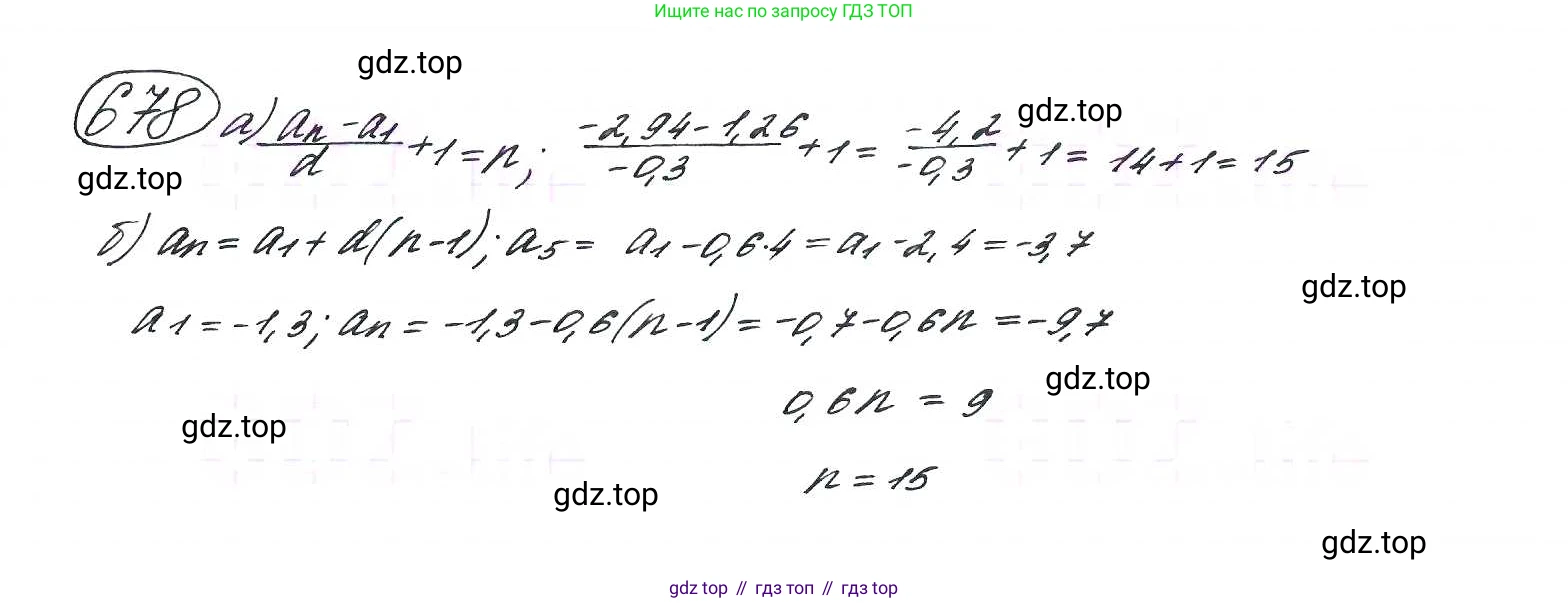 Ищите нас по запросу ГДЗ ТОП
gdz.top
678 а) (aₙ - a₁)/d + 1 = n; (-2,94 - 1,26)/(-0,3) + 1 = (-4,2)/(-0,3) + 1 = 14 + 1 = 15
gdz.top
gdz.top
б) aₙ = a₁ + d(n-1); a₅ = a₁ - 0,6·4 = a₁ - 2,4 = -3,7
gdz.top
a₁ = -1,3; aₙ = -1,3 - 0,6(n-1) = -0,7 - 0,6n = -9,7
gdz.top
0,6n = 9
gdz.top
n = 15
gdz.top
gdz.top
gdz top // гдз топ // гдз top